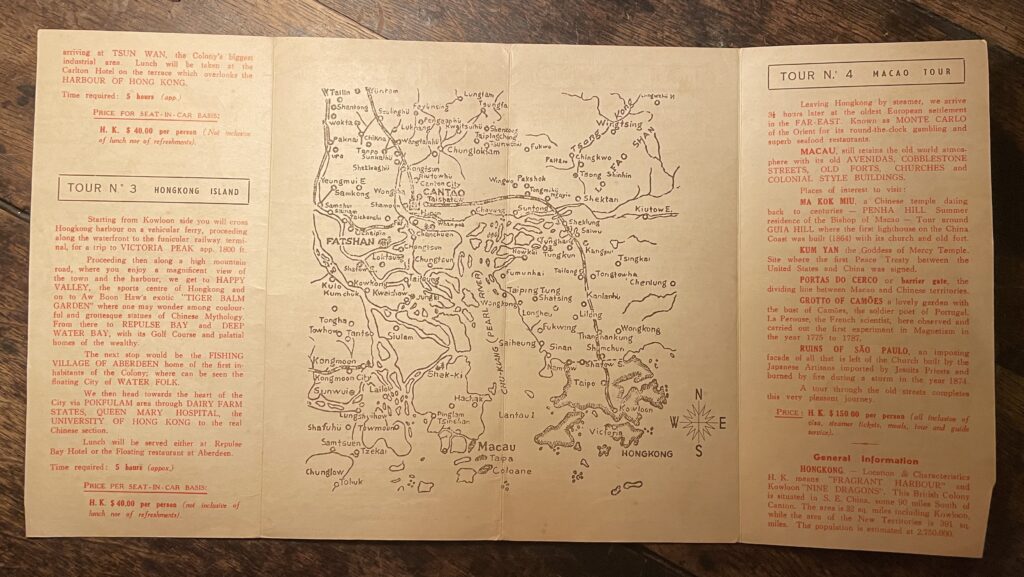 arriving at TSUN WAN, the Colony's biggest
industrial area. Lunch will be taken at the
Carlton Hotel on the terrace which overlooks the
HARBOUR OF HONG KONG.
Time required: 5 hours (app.)
PRICE FOR SEAT-IN-CAR BASIS:
H. K. $ 40.00 per person (Not inclusive
of lunch nor of refreshments).
TOUR N.° 3 HONGKONG ISLAND
Starting from Kowloon side you will cross
Hongkong harbour on a vehicular ferry, proceeding
along the waterfront to the funicular railway terminal,
for a trip to VICTORIA PEAK, app. 1800 ft.
Proceeding then along a high mountain
road, where you enjoy a magnificent view of
the town and the harbour, we get to HAPPY
VALLEY, the sports centre of Hongkong and
on to Aw Boon Haw's exotic "TIGER BALM
GARDEN" where one may wonder among coulour-
ful and grotesque statues of Chinese Mythology.
From there to REPULSE BAY and DEEP
WATER BAY, with its Golf Course and palatial
homes of the wealthy.
The next stop would be the FISHING
VILLAGE OF ABERDEEN home of the first in-
habitants of the Colony; where can be seen the
floating City of WATER FOLK.
We then head towards the heart of the
City via POKFULAM area through DAIRY FARM
STATES, QUEEN MARY HOSPITAL, the
UNIVERSITY OF HONG KONG to the real
Chinese section.
Lunch will be served either at Repulse
Bay Hotel or the Floating restaurant at Aberdeen.
Time required: 5 hours (appox.)
PRICE PER SEAT-IN-CAR BASIS:
H. K. $ 40.00 per person (not inclusive of
lunch nor of refreshments).
Tailin Yuntam
Shantong Szulinghu Fayunsing Lungtam
Pengcaphu Tsungfa
Kwokta Lukfang Kwaitsuihu Shenkong
Paknai Chikna Taipingchang
Taipo Wongtainhu Tsunghuatun
Sunkaihu Chunglokkam
Kongtsun
Yeungmui E Jiutowhu
Samkong Wongha Canton City
CANTAO
Taishatau
Samshui Honan
Taikanhu Whampoa
Waipin Chanchuen
FATSHAN Chongtsun
Lokitsun Chungtsun
Shatow
Kulo Kowkong
Kumchuk Kweishow Yungki
Tongha
Towhow Tantso Siulam
Kongmoon
Kongmoon City Shek-Ki
Sunwui
Lungshuihow Hachak
Shafuhu Towmoon Pinglam
Tsinshan
Samtsuen Tzekai
Macau
Chunglow Taipa
Tohuk Coloane
CHU-KONG (PEARL RIVER)
Kong Lingwchi H
Wingfsing
Fukwo
Pattam Tsong LO FAO SHAN
Chingkwo
Tsong Shinhin
Wingwo Pakshek
Yongmihu Shektan
Ngapin
Chayung Suntong Kiutow E.
Sheklung
Saiwu
Tyngharg
Towkai Kangsui
Tungkun Tsingkai
Fumunhai Tailong Tongtowha
Taiping Tung Chenlung
Shatsing Kanlanhu
Wongkong
Longhei Lilong
Fukwing Wongkong
Thanghankung
Saiheung Shumchun
Sinan Shatow
Namtow
Taipo
Kowloon
Lantau I Victoria
HONGKONG
N
W E
S
TOUR N.° 4 MACAO TOUR
Leaving Hongkong by steamer, we arrive
3½ hours later at the oldest European settlement
in the FAR-EAST. Known as MONTE CARLO
of the Orient for its round-the-clock gambling and
superb seafood restaurants.
MACAU, still retains the old world atmos-
phere with its old AVENIDAS, COBBLESTONE
STREETS, OLD FORTS, CHURCHES and
COLONIAL STYLE BUILDINGS.
Places of interest to visit:
MA KOK MIU, a Chinese temple dating
back to centuries — PENHA HILL Summer
residence of the Bishop of Macao — Tour around
GUIA HILL where the first lighthouse on the China
Coast was built (1864) with its church and old fort.
KUM YAN the Goddess of Mercy Temple,
Site where the first Peace Treaty between the
United States and China was signed.
PORTAS DO CERCO or barrier gate, the
dividing line between Macao and Chinese territories.
GROTTO OF CAMÕES a lovely garden with
the bust of Camões, the soldier poet of Portugal.
La Perouse, the French scientist, here observed and
carried out the first experiment in Magnetism in
the year 1775 to 1787.
RUINS OF SÃO PAULO, an imposing
facade of all that is left of the Church built by the
Japanese Artisans imported by Jesuits Priests and
burned by fire during a storm in the year 1874.
A tour through the old streets completes
this very pleasant journey.
PRICE: H. K. $ 150.00 per person (all inclusive of
visa, steamer tickets, meals, tour and guide
service).
General Information
HONGKONG. — Location & Characteristics
H. K. means "FRAGRANT HARBOUR" and
Kowloon "NINE DRAGONS". This British Colony
is situated in S. E. China, some 90 miles South of
Canton. The area is 32 sq. miles including Kowloon,
while the area of the New Territories is 391 sq.
miles. The population is estimated at 2,750.000.